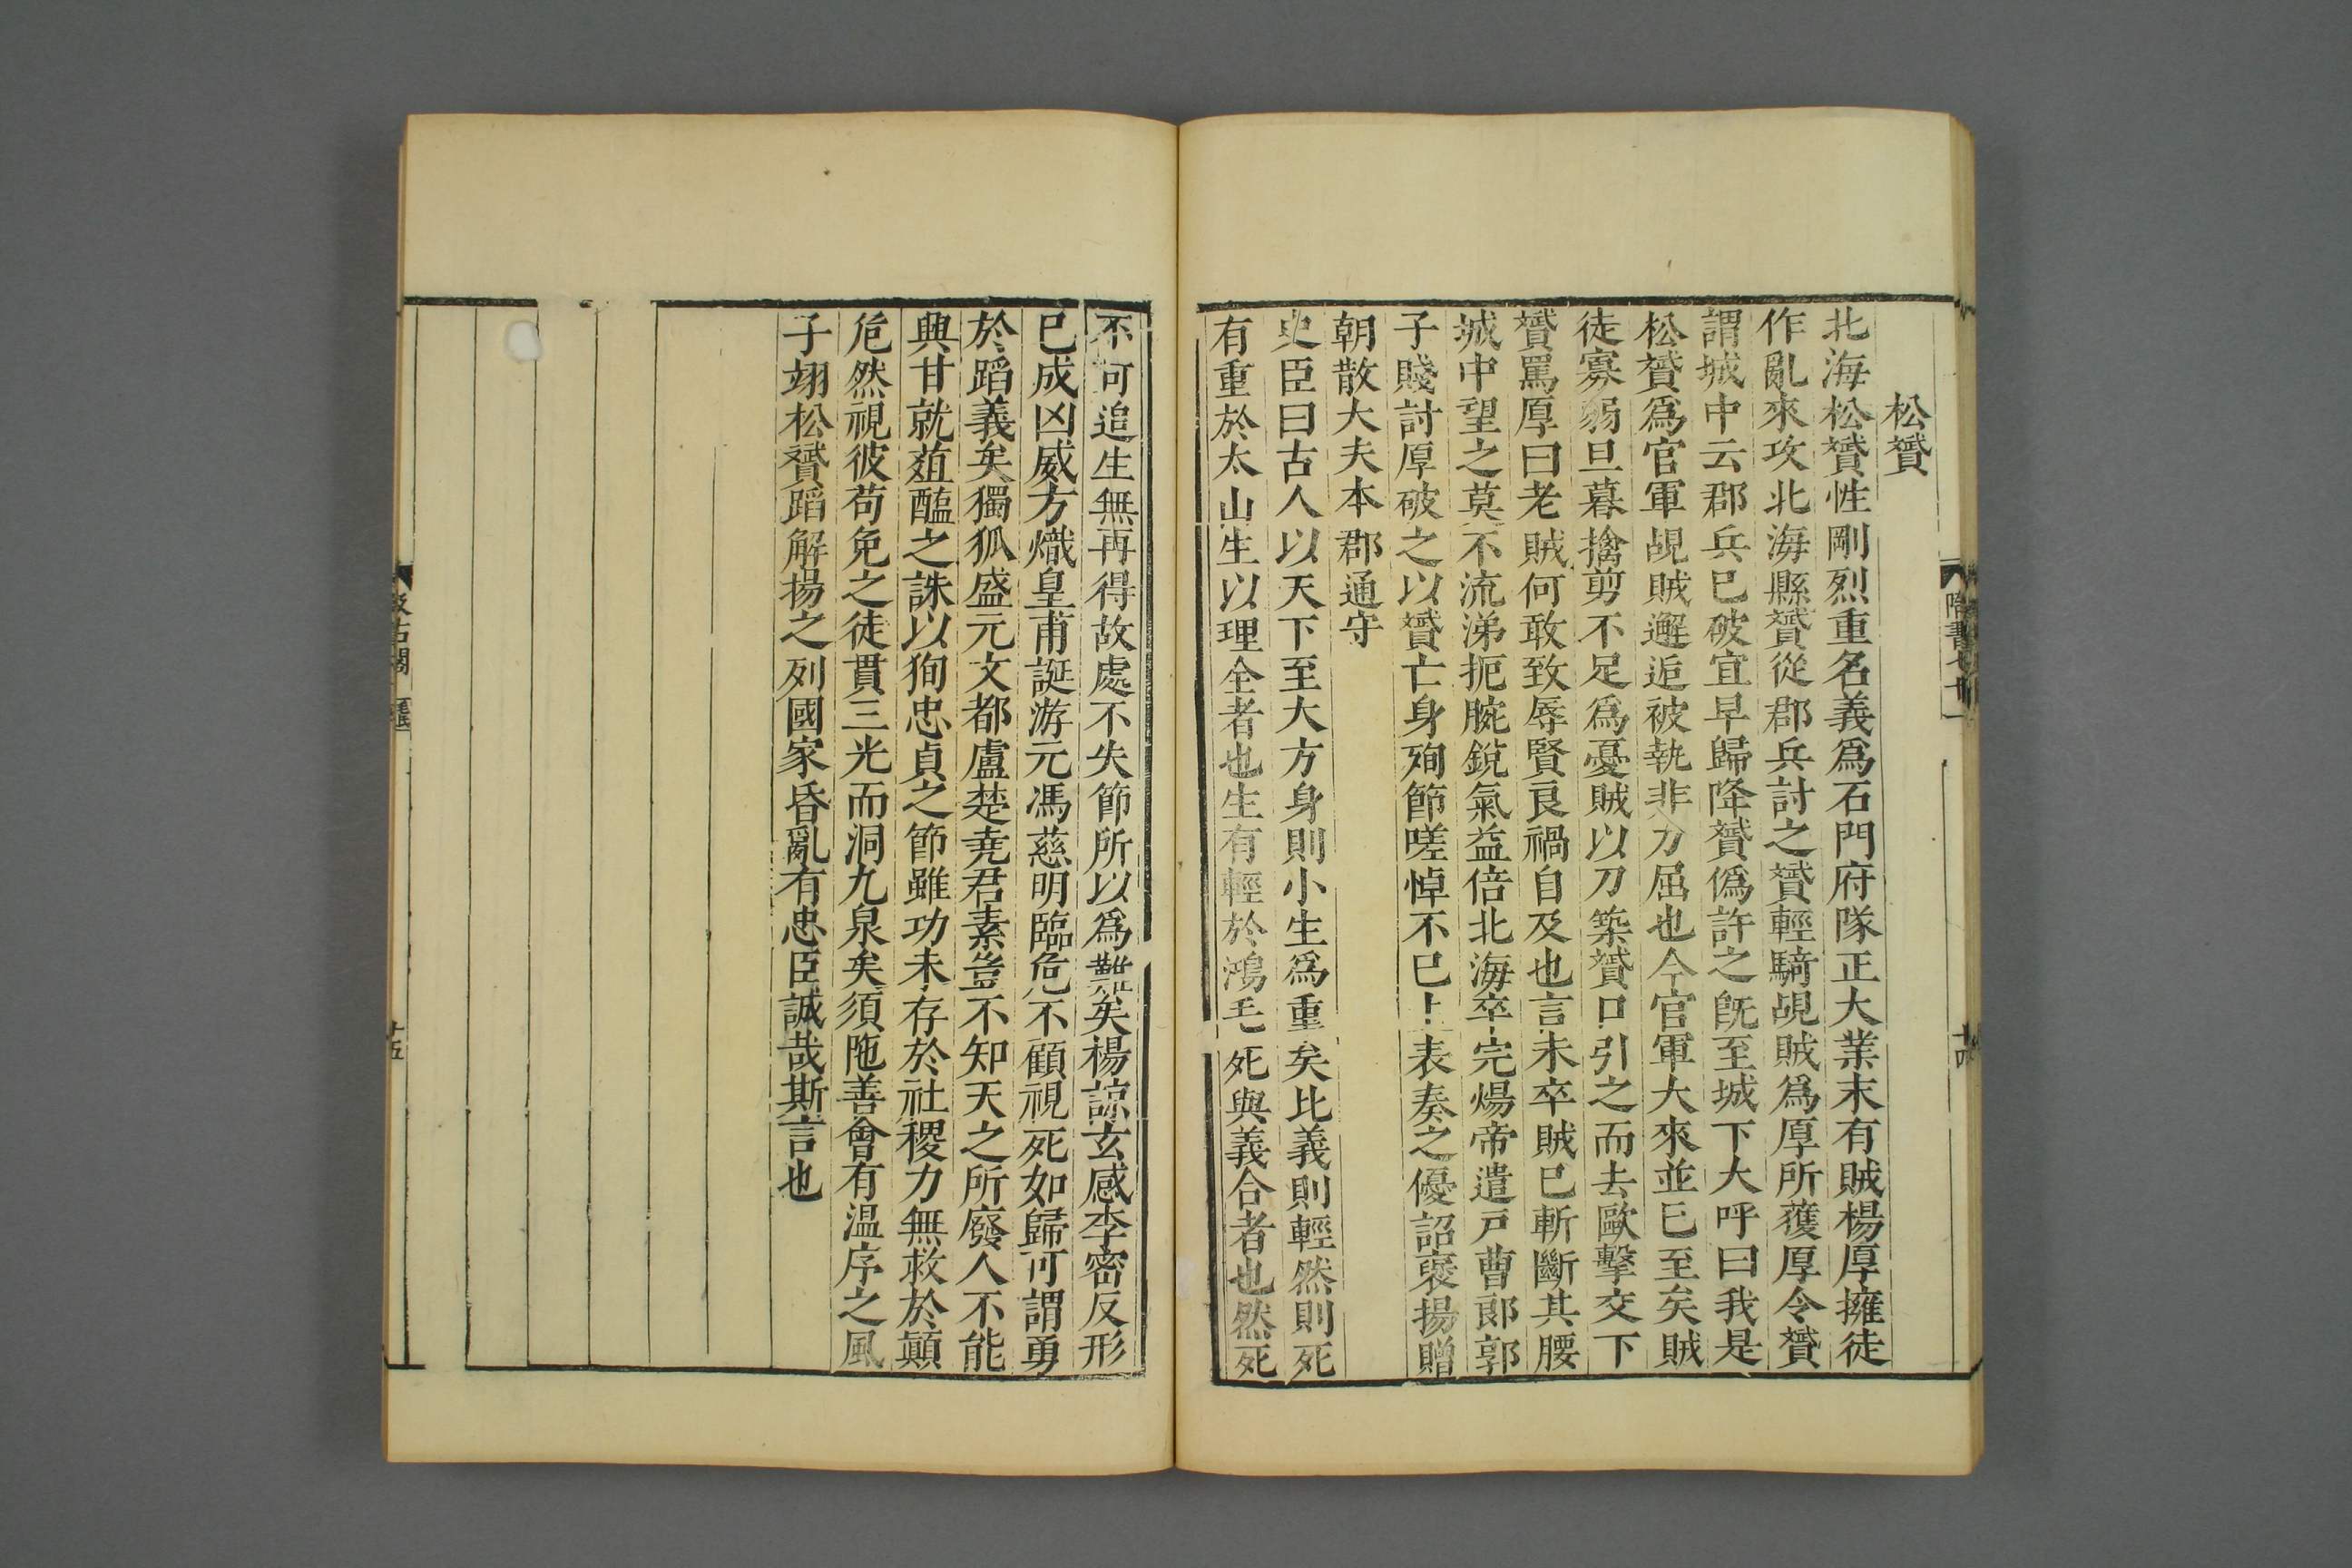 松贇
北海松贇性剛烈重名義爲石門府隊正大業末有賊楊厚擁徒
作亂來攻北海縣贇從郡兵討之贇輕騎覘賊爲厚所獲厚令贇
謂城中云郡兵已破宜早歸降贇僞許之旣至城下大呼曰我是
松贇爲官軍覘賊邂逅被執非力屈也今官軍大來並已至矣賊
徒寡弱旦暮擒剪不足爲憂賊以刀築贇口引之而去毆擊交下
贇罵厚曰老賊何敢致辱賢良禍自及也言未卒賊已斬斷其腰
城中望之莫不流涕扼腕銳氣益倍北海卒完煬帝遣戸曹郞郭
子賤討厚破之以贇亡身殉節嗟悼不已上表奏之優詔褒揚贈
朝散大夫本郡通守
史臣曰古人以天下至大方身則小生爲重矣比義則輕然則死
有重於太山生以理全者也生有輕於鴻毛死與義合者也然死
不可追生無再得故處不失節所以爲難矣楊諒玄感李密反形
已成凶威方熾皇甫誕游元馮慈明臨危不顧視死如歸可謂勇
於蹈義矣獨狐盛元文都盧楚堯君素豈不知天之所廢人不能
興甘就葅醢之誅以狥忠貞之節雖功未存於社稷力無救於顚
危然視彼苟免之徒貫三光而洞九泉矣須陁善會有温序之風
子翊松贇蹈解揚之列國家昏亂有忠臣誠哉斯言也
隋書七十一
十四
汲古閣
十五